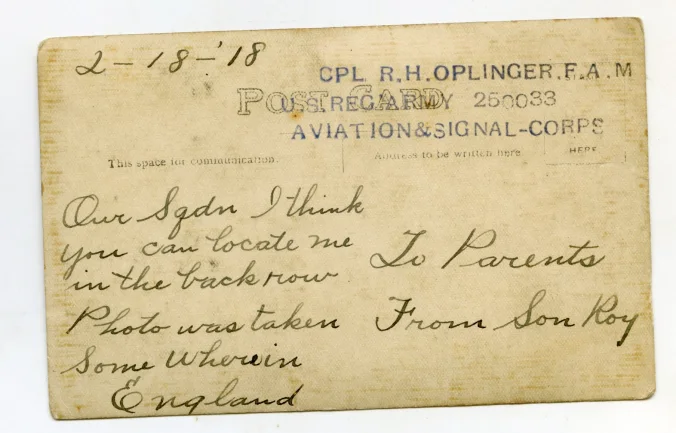 2-18-'18
CPL. R.H.OPLINGER.F.A.M
POST CARD
U.S. REG.ARMY 250033
AVIATION&SIGNAL-CORPS
This space for communication.
Address to be written here
HERE
Our Sqdn I think
you can locate me
in the back row
Photo was taken
Some Wherein
England
To Parents
From Son Roy